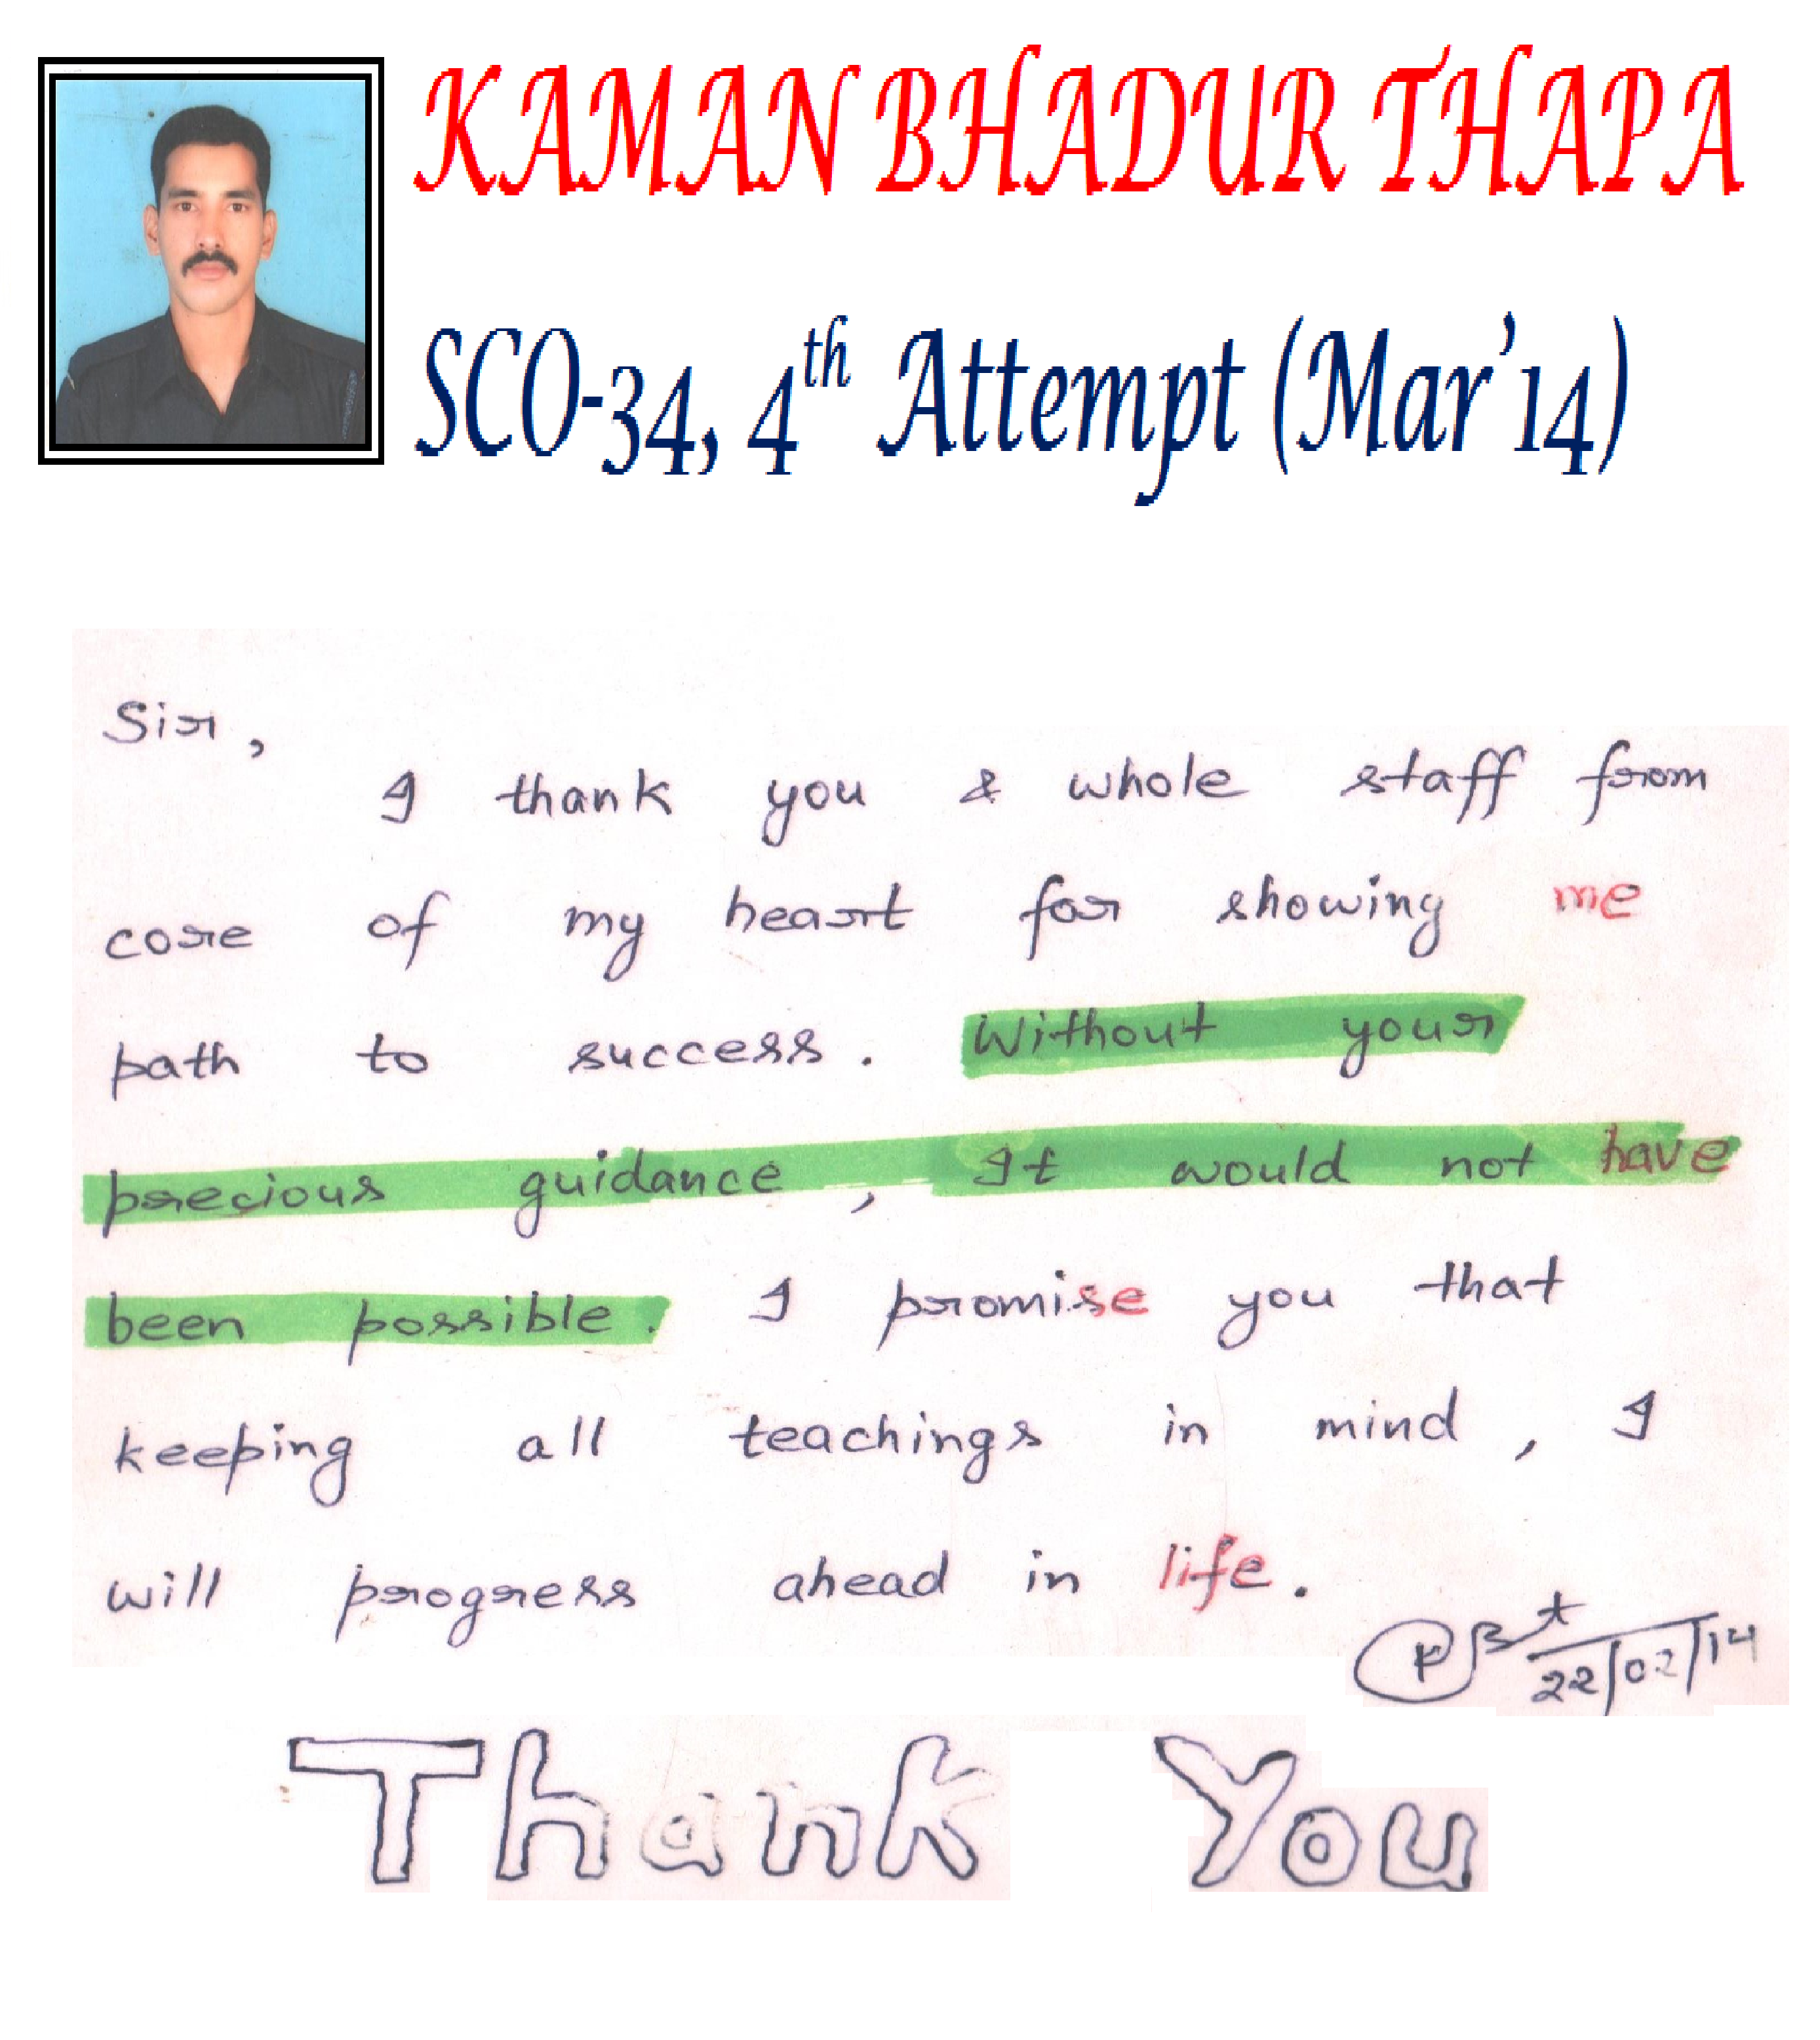 KAMAN BHADUR THAPA
SCO-34, 4th Attempt (Mar'14)
Sir,
I thank you & whole staff from
core of my heart for showing me
path to success. Without your
precious guidance, It would not have
been possible. I promise you that
keeping all teachings in mind, I
will progress ahead in life.
22/02/14
Thank You